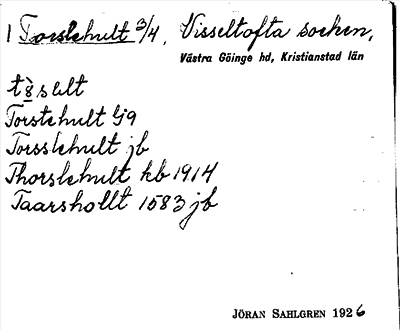 1 Torslehult 3/4, Visseltofta socken,
Västra Göinge hd, Kristianstad län
Torstehult
Torsslehult jb
Thorslehult kb 1914
Taarshollt 1583 jb
JÖRAN SAHLGREN 1926